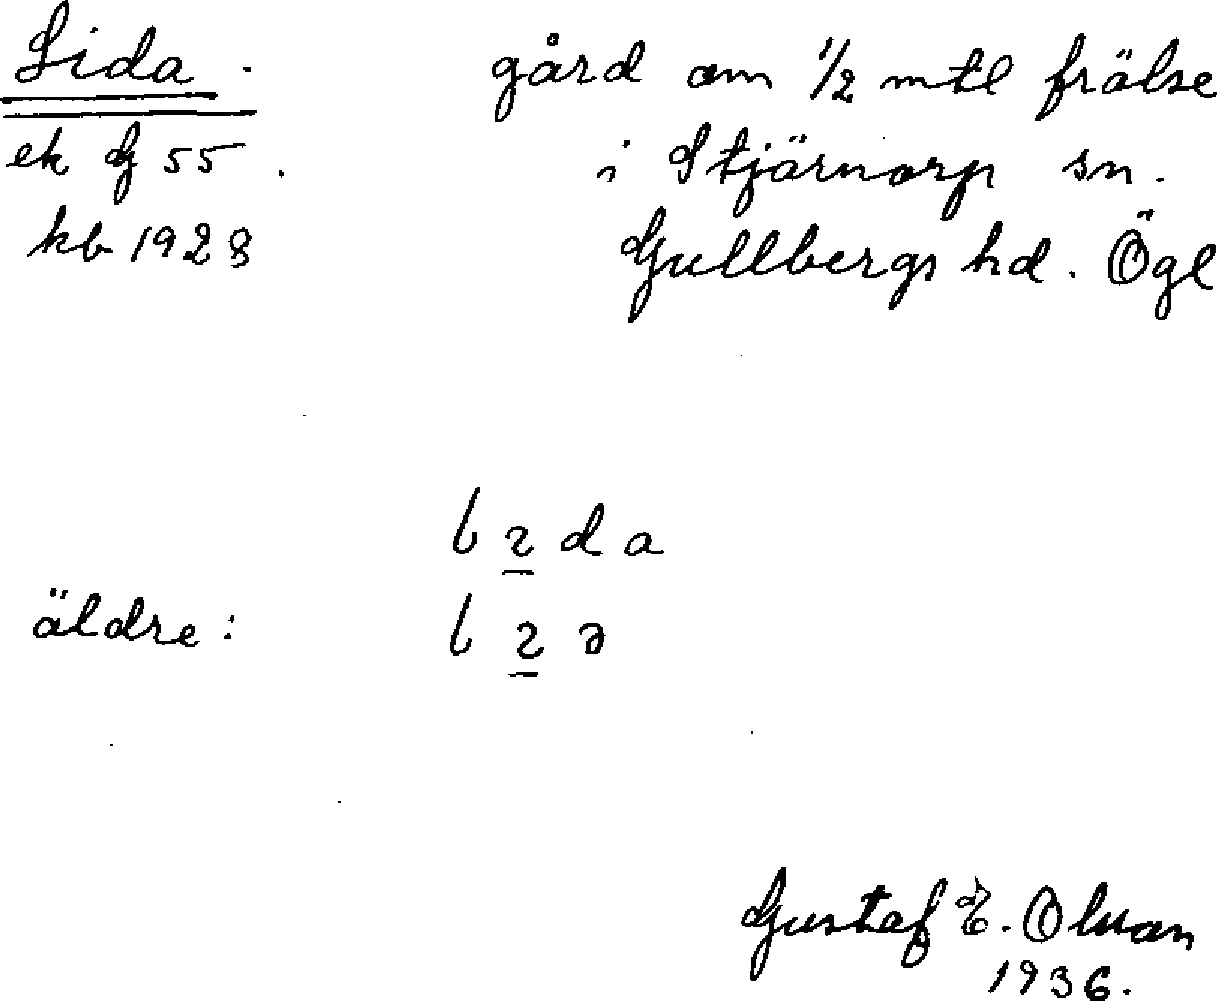 Lida. gård om 1/2 mtl frälse
ek G 55. i Stjärnorp sn.
kb 1928 Gullbergs hd. Ögl
äldre:
Gustaf E. Olsson
1936.